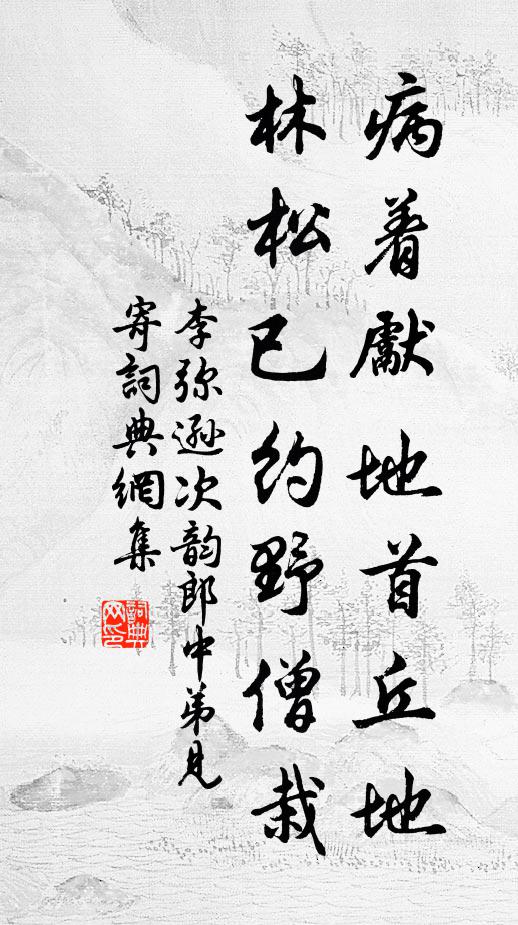 病着獻地首丘地
林松已約野僧栽
李弥遜次韵郎中弟見
寄詞典網集
詞典网印